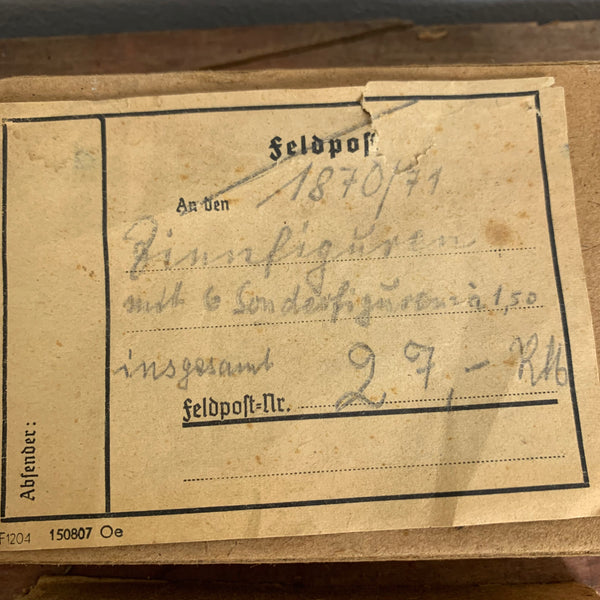 Feldpost
1870/71
An den
Zinnfiguren
mit 6 Sonderfiguren à 1,50
insgesamt 27,- RM
Feldpost-Nr.
Absender:
F1204 150807 Oe